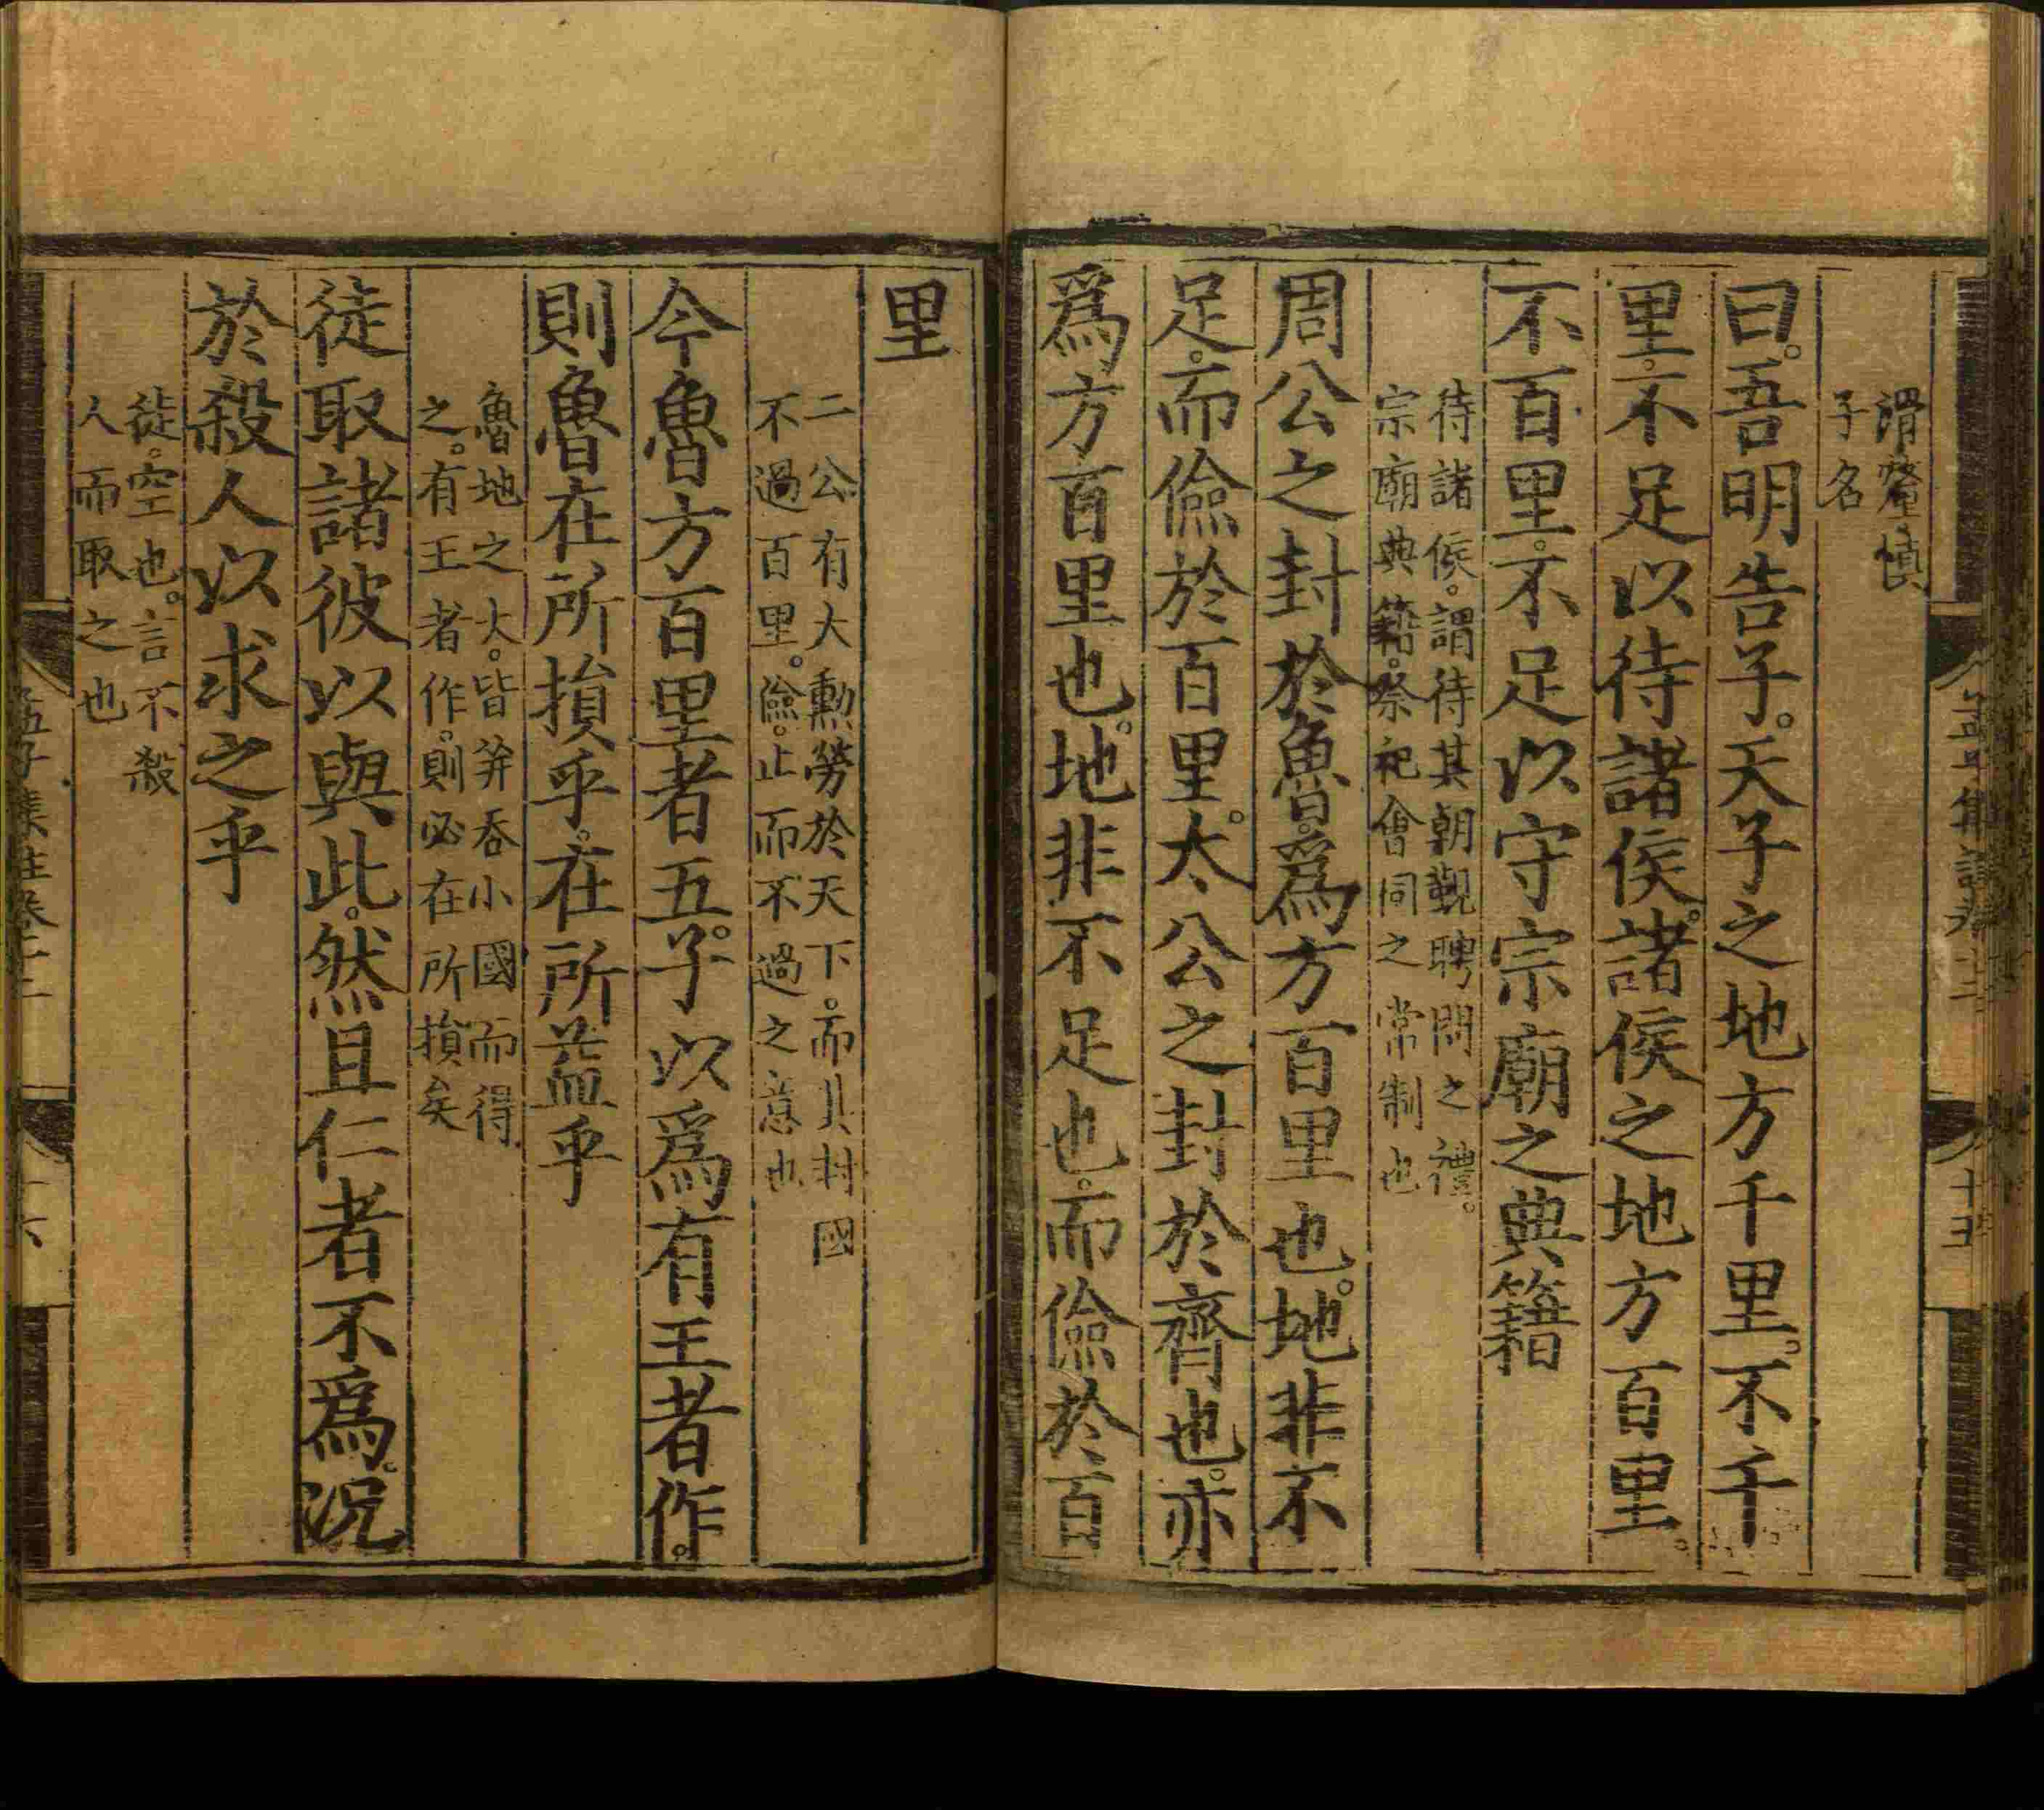 滑釐慎
子名
曰。吾明告子。天子之地方千里。不千
里。不足以待諸侯。諸侯之地方百里。
不百里。不足以守宗廟之典籍
待諸侯。謂待其朝覲聘問之禮。
宗廟典籍。祭祀會同之常制也
周公之封於魯。爲方百里也。地非不
足。而儉於百里。太公之封於齊也。亦
爲方百里也。地非不足也。而儉於百
里
二公有大勳勞於天下。而其封國
不過百里。儉。止而不過之意也
今魯方百里者五。子以爲有王者作。
則魯在所損乎。在所益乎
魯地之大。皆并吞小國而得
之。有王者作。則必在所損矣
徒取諸彼以與此。然且仁者不爲。況
於殺人以求之乎
徒。空也。言不殺
人而取之也
孟子集註卷十二
十五
孟子集註卷十二
十六